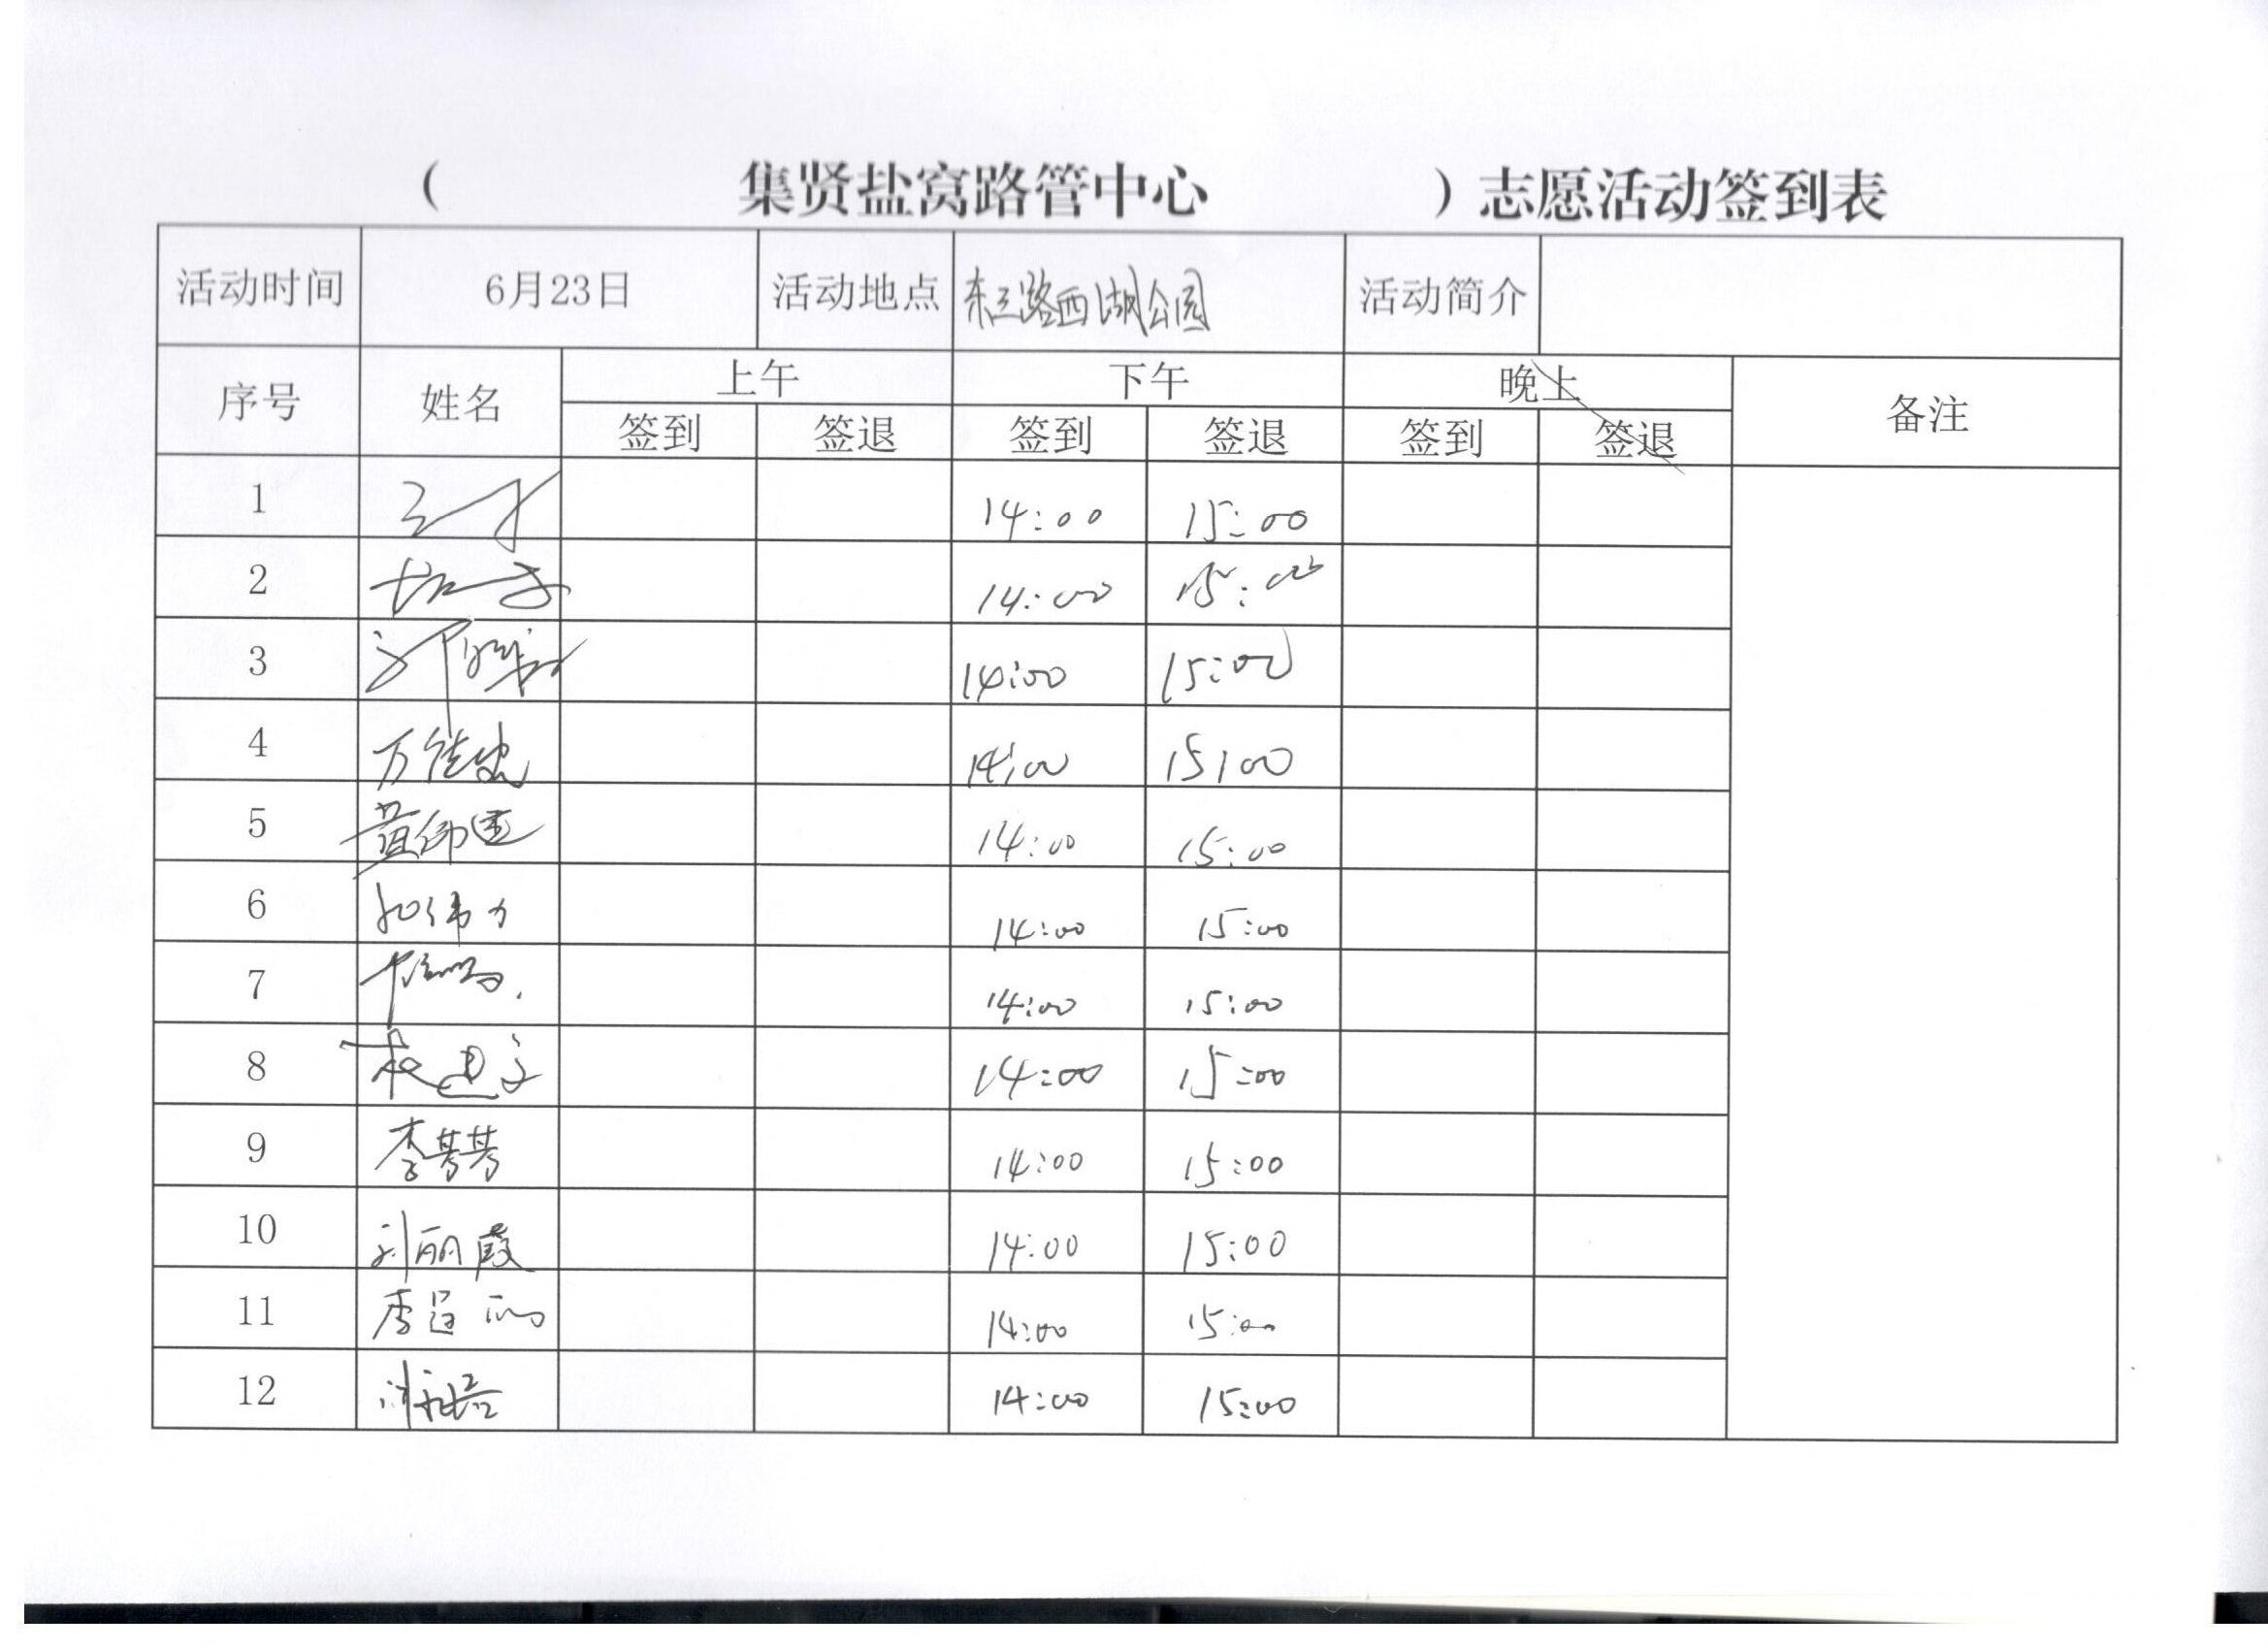 （ 集贤盐窝路管中心 ）志愿活动签到表
活动时间 6月23日 活动地点 东三路西湖公园 活动简介
序号 姓名 上午 下午 晚上 备注
签到 签退 签到 签退 签到 签退
1 14:00 15:00
2 14:00 15:00
3 14:00 15:00
4 14:00 15:00
5 14:00 15:00
6 14:00 15:00
7 14:00 15:00
8 14:00 15:00
9 李芳芳 14:00 15:00
10 刘丽霞 14:00 15:00
11 14:00 15:00
12 14:00 15:00